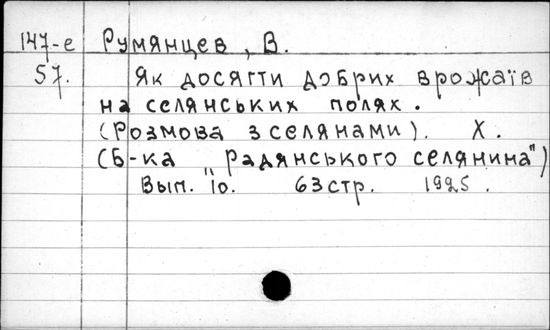 147-е Румянцев, В.
57. Як досягти добрих врожаїв
на селянських полях.
(Розмова з селянами). Х.
(Б-ка „Радянського селянина")
Вып. 10. 63 стр. 1925.